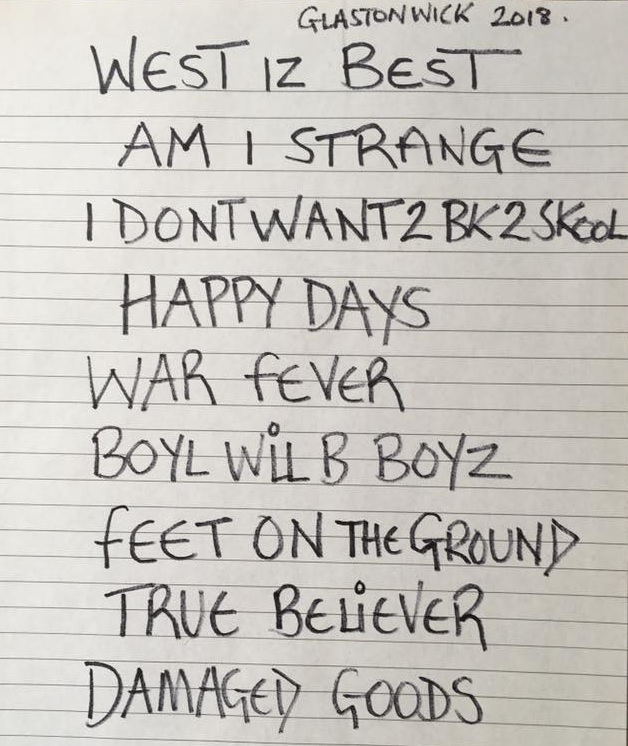 GLASTONWICK 2018.
WEST IZ BEST
AM I STRANGE
I DONT WANT 2 BK 2 SKOOL
HAPPY DAYS
WAR FEVER
BOYL WILL B BOYZ
FEET ON THE GROUND
TRUE BELIEVER
DAMAGED GOODS